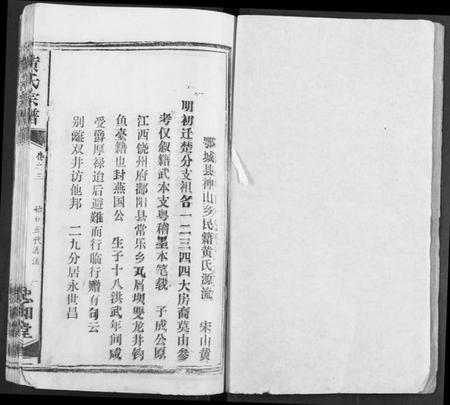 鄂城县神山乡民籍黄氏源流
宋山黄
明初迁楚分支祖各一二三四四大房裔莫由参
考仅叙籍武本支粤稽墨本笔载　子成公原
江西饶州府鄱阳县常乐乡瓦屑坝双龙井钩
鱼臺籍也封燕国公　生子十八洪武年间咸
受爵厚禄迨后避难而行临行赠有句云
别离双井访他邦　二九分居永世昌
黄氏宗谱
卷之三
五代源流
堂